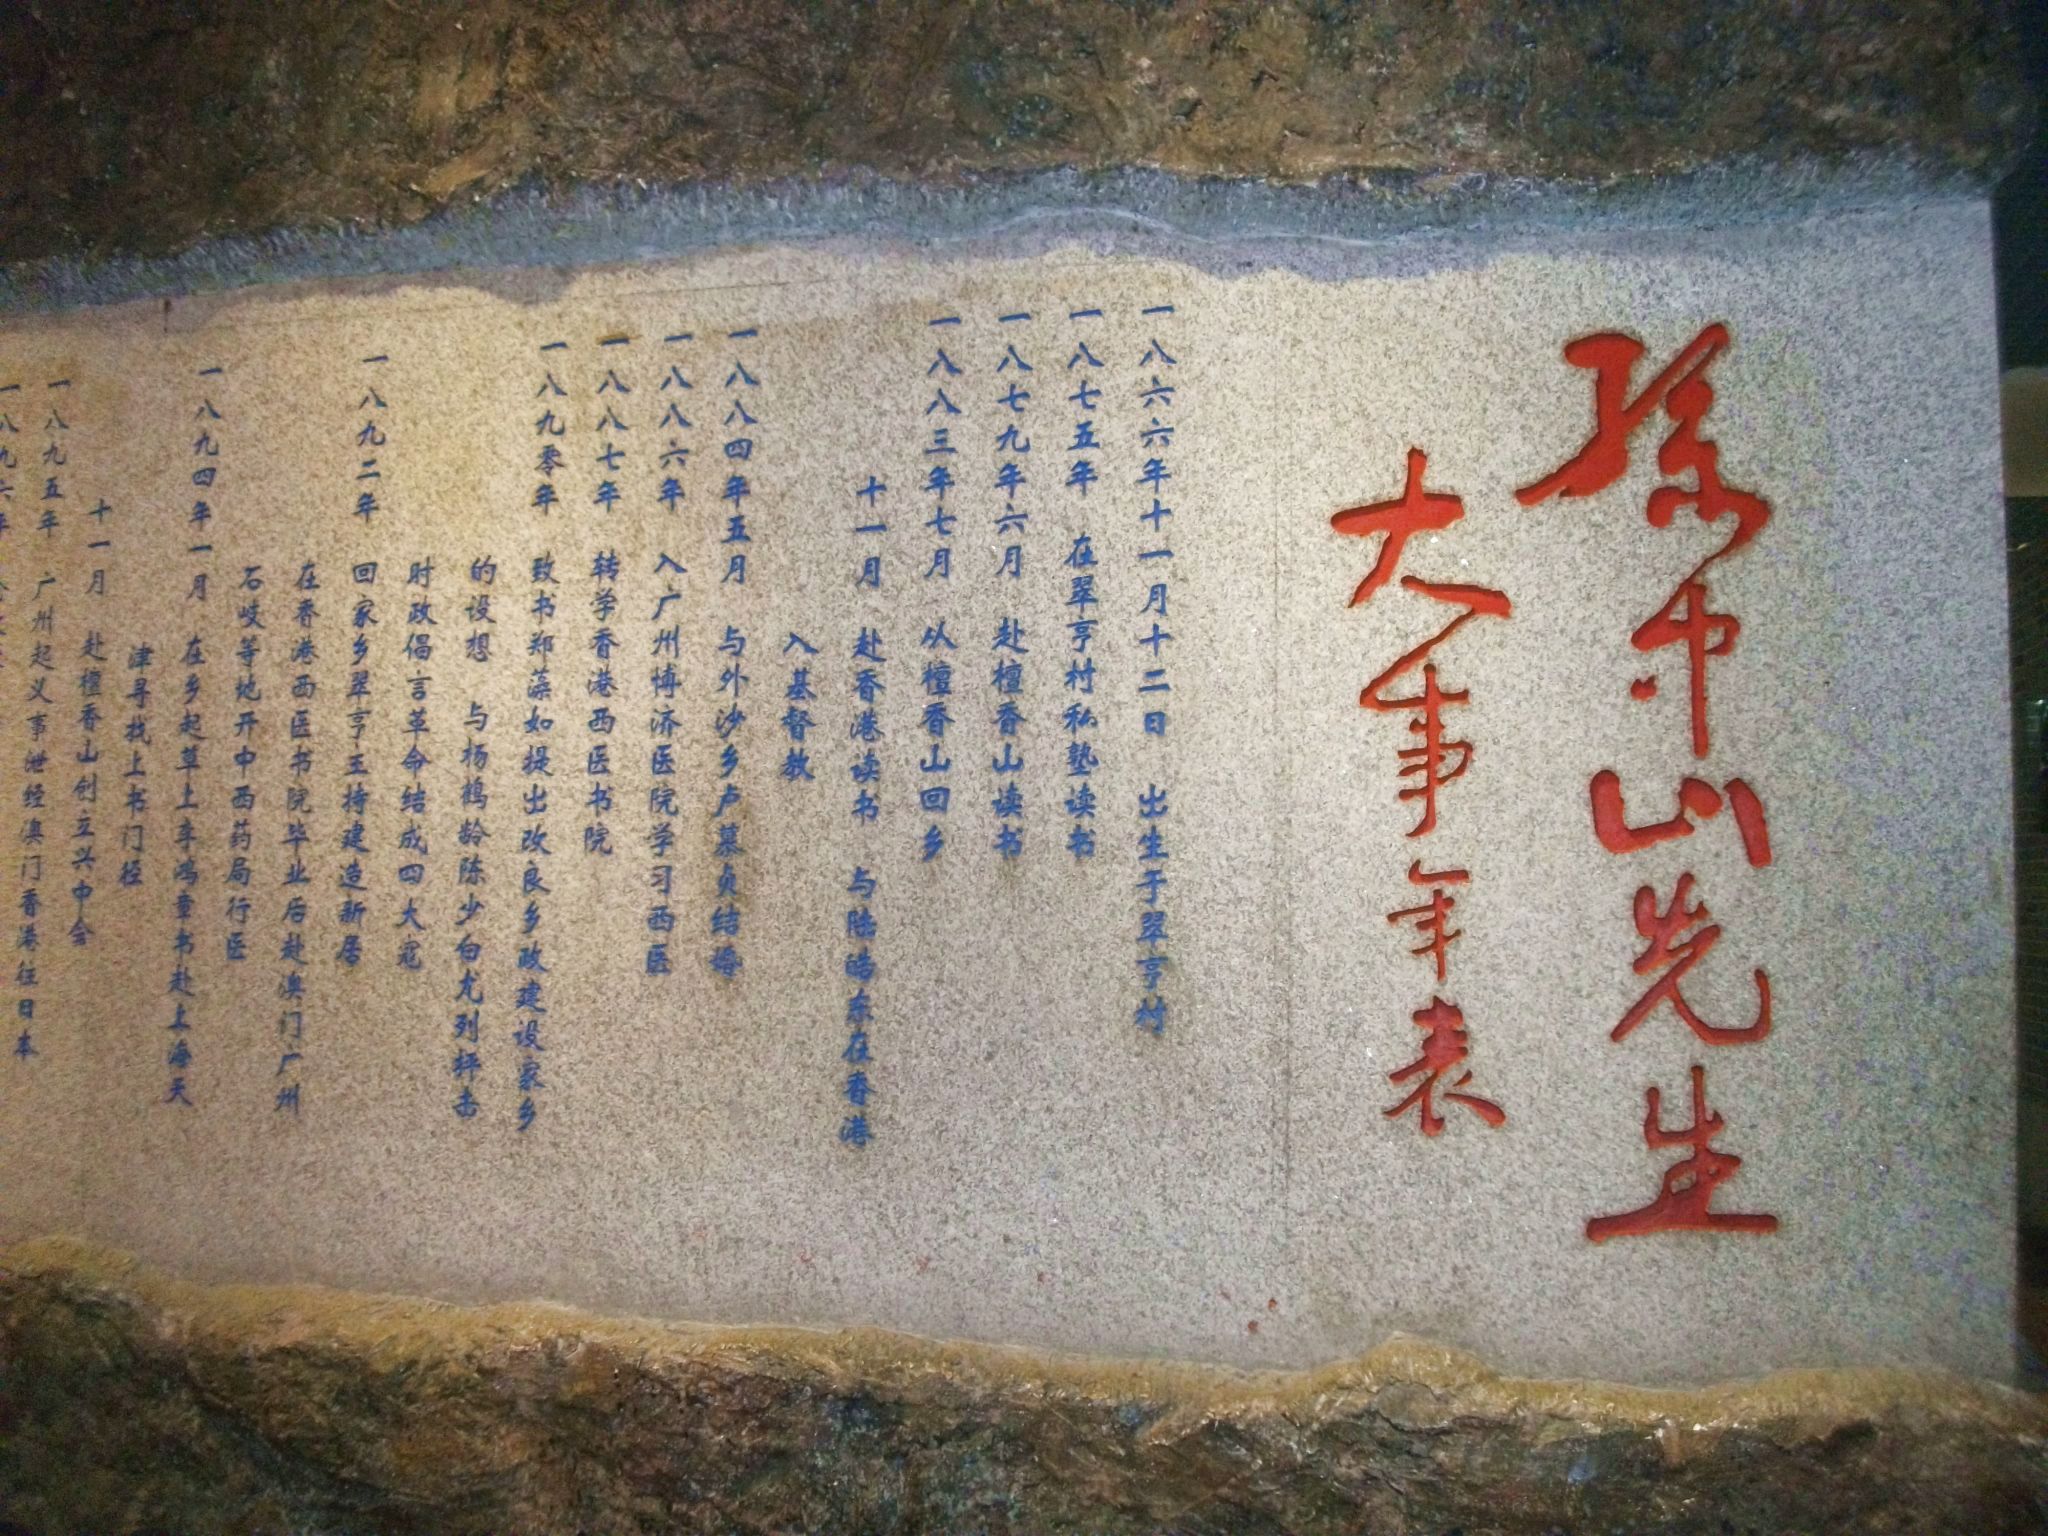 孫中山先生
大事年表
一八六六年十一月十二日 出生于翠亨村
一八七五年 在翠亨村私塾读书
一八七九年六月 赴檀香山读书
一八八三年七月 从檀香山回乡
十一月 赴香港读书 与陆皓东在香港
入基督教
一八八四年五月 与外沙乡卢慕贞结婚
一八八六年 入广州博济医院学习西医
一八八七年 转学香港西医书院
一八九零年 致书郑藻如提出改良乡政建设家乡
的设想 与杨鹤龄陈少白尤列抨击
时政倡言革命结成四大寇
一八九二年 回家乡翠亨主持建造新居
在香港西医书院毕业后赴澳门广州
石岐等地开中西药局行医
一八九四年一月 在乡起草上李鸿章书赴上海天
津寻找上书门径
十一月 赴檀香山创立兴中会
一八九五年 广州起义事泄经澳门香港往日本
一八九六年